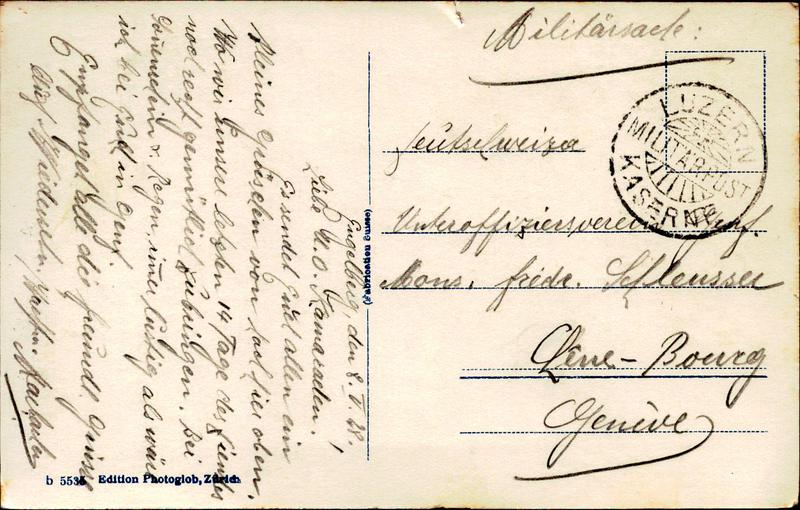 Militärsache:
LUZERN
MILITÄRPOST
KASERNE
Deutschweizer
Unteroffiziersverein
Mons. frédr. Schleusser
Genève
(Fabrication Suisse)
Engelberg, den
Liebe U.O. Kamaraden!
Es sendet Euch allen ein
kleines Grüsschen von hoch hier oben.
Wo wir unsere letzten 14 Tage des
noch recht gemütlich Bei
Regen, immer lustig als wäre
ich bei Euch in Genf.
Empfanget alle die freundl. Grüsse
b 5535 Edition Photoglob, Zürich